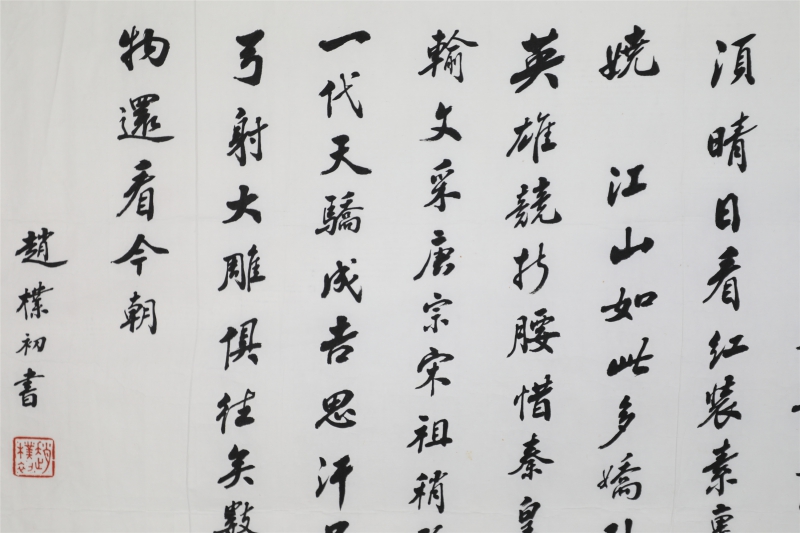 須晴日看红装素裹
嬈 江山如此多嬌引
英雄競折腰惜秦皇
輸文采唐宗宋祖稍
一代天驕成吉思汗
弓射大雕俱往矣數
物還看今朝
趙樸初書